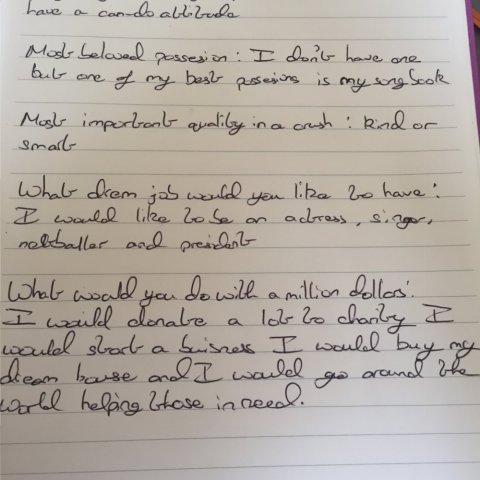 have a can-do attitude
Most beloved possesion : I don't have one
but one of my best possesions is my song book
Most important quality in a crush : kind or
smart
What dream job would you like to have :
I would like to be an actress, singer,
netballer and president
What would you do with a million dollars:
I would donate a lot to charity I
would start a buisness I would buy my
dream house and I would go around the
world helping those in need.